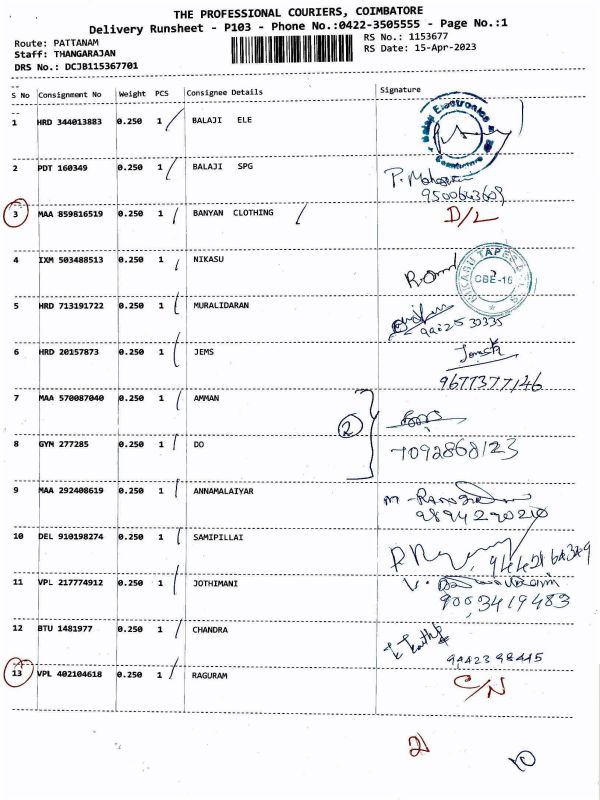 THE PROFESSIONAL COURIERS, COIMBATORE
Delivery Runsheet - P103 - Phone No.:0422-3505555 - Page No.:1
Route: PATTANAM
RS No.: 1153677
Staff: THANGARAJAN
RS Date: 15-Apr-2023
DRS No.: DCJB115367701
S No Consignment No Weight PCS Consignee Details Signature
1 HRD 344013883 0.250 1 BALAJI ELE
Balaji Electronics
Coimbatore
2 PDT 160349 0.250 1 BALAJI SPG
9500643609
3 MAA 859816519 0.250 1 BANYAN CLOTHING D/L
4 IXM 503488513 0.250 1 NIKASU
NIKASU TAPES
CBE-16
5 HRD 713191722 0.250 1 MURALIDARAN
6 HRD 20157873 0.250 1 JEMS
9677377146
7 MAA 570087040 0.250 1 AMMAN
2
8 GYM 277285 0.250 1 DO 7092868123
9 MAA 292408619 0.250 1 ANNAMALAIYAR
9894290210
10 DEL 910198274 0.250 1 SAMIPILLAI
11 VPL 217774912 0.250 1 JOTHIMANI
9003419483
12 BTU 1481977 0.250 1 CHANDRA
9442398445
13 VPL 402104618 0.250 1 RAGURAM C/N
2
10